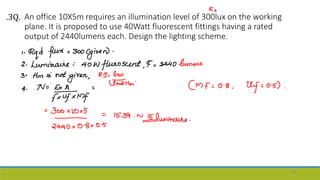 E₀
.3Q. An office 10X5m requires an illumination level of 300lux on the working
plane. It is proposed to use 40Watt fluorescent fittings having a rated
output of 2440lumens each. Design the lighting scheme.
1. Rqd flux = 300 (given).
2. Luminaire : 40W fluorescent, F = 2440 lumens
3. Hm is not given, RI =
4. N = E x A / F x Uf x Mf = (Mf = 0.8, Uf = 0.5).
= 300 x 10 x 5 / 2440 x 0.8 x 0.5 = 15.34 ~ 15 luminaire.